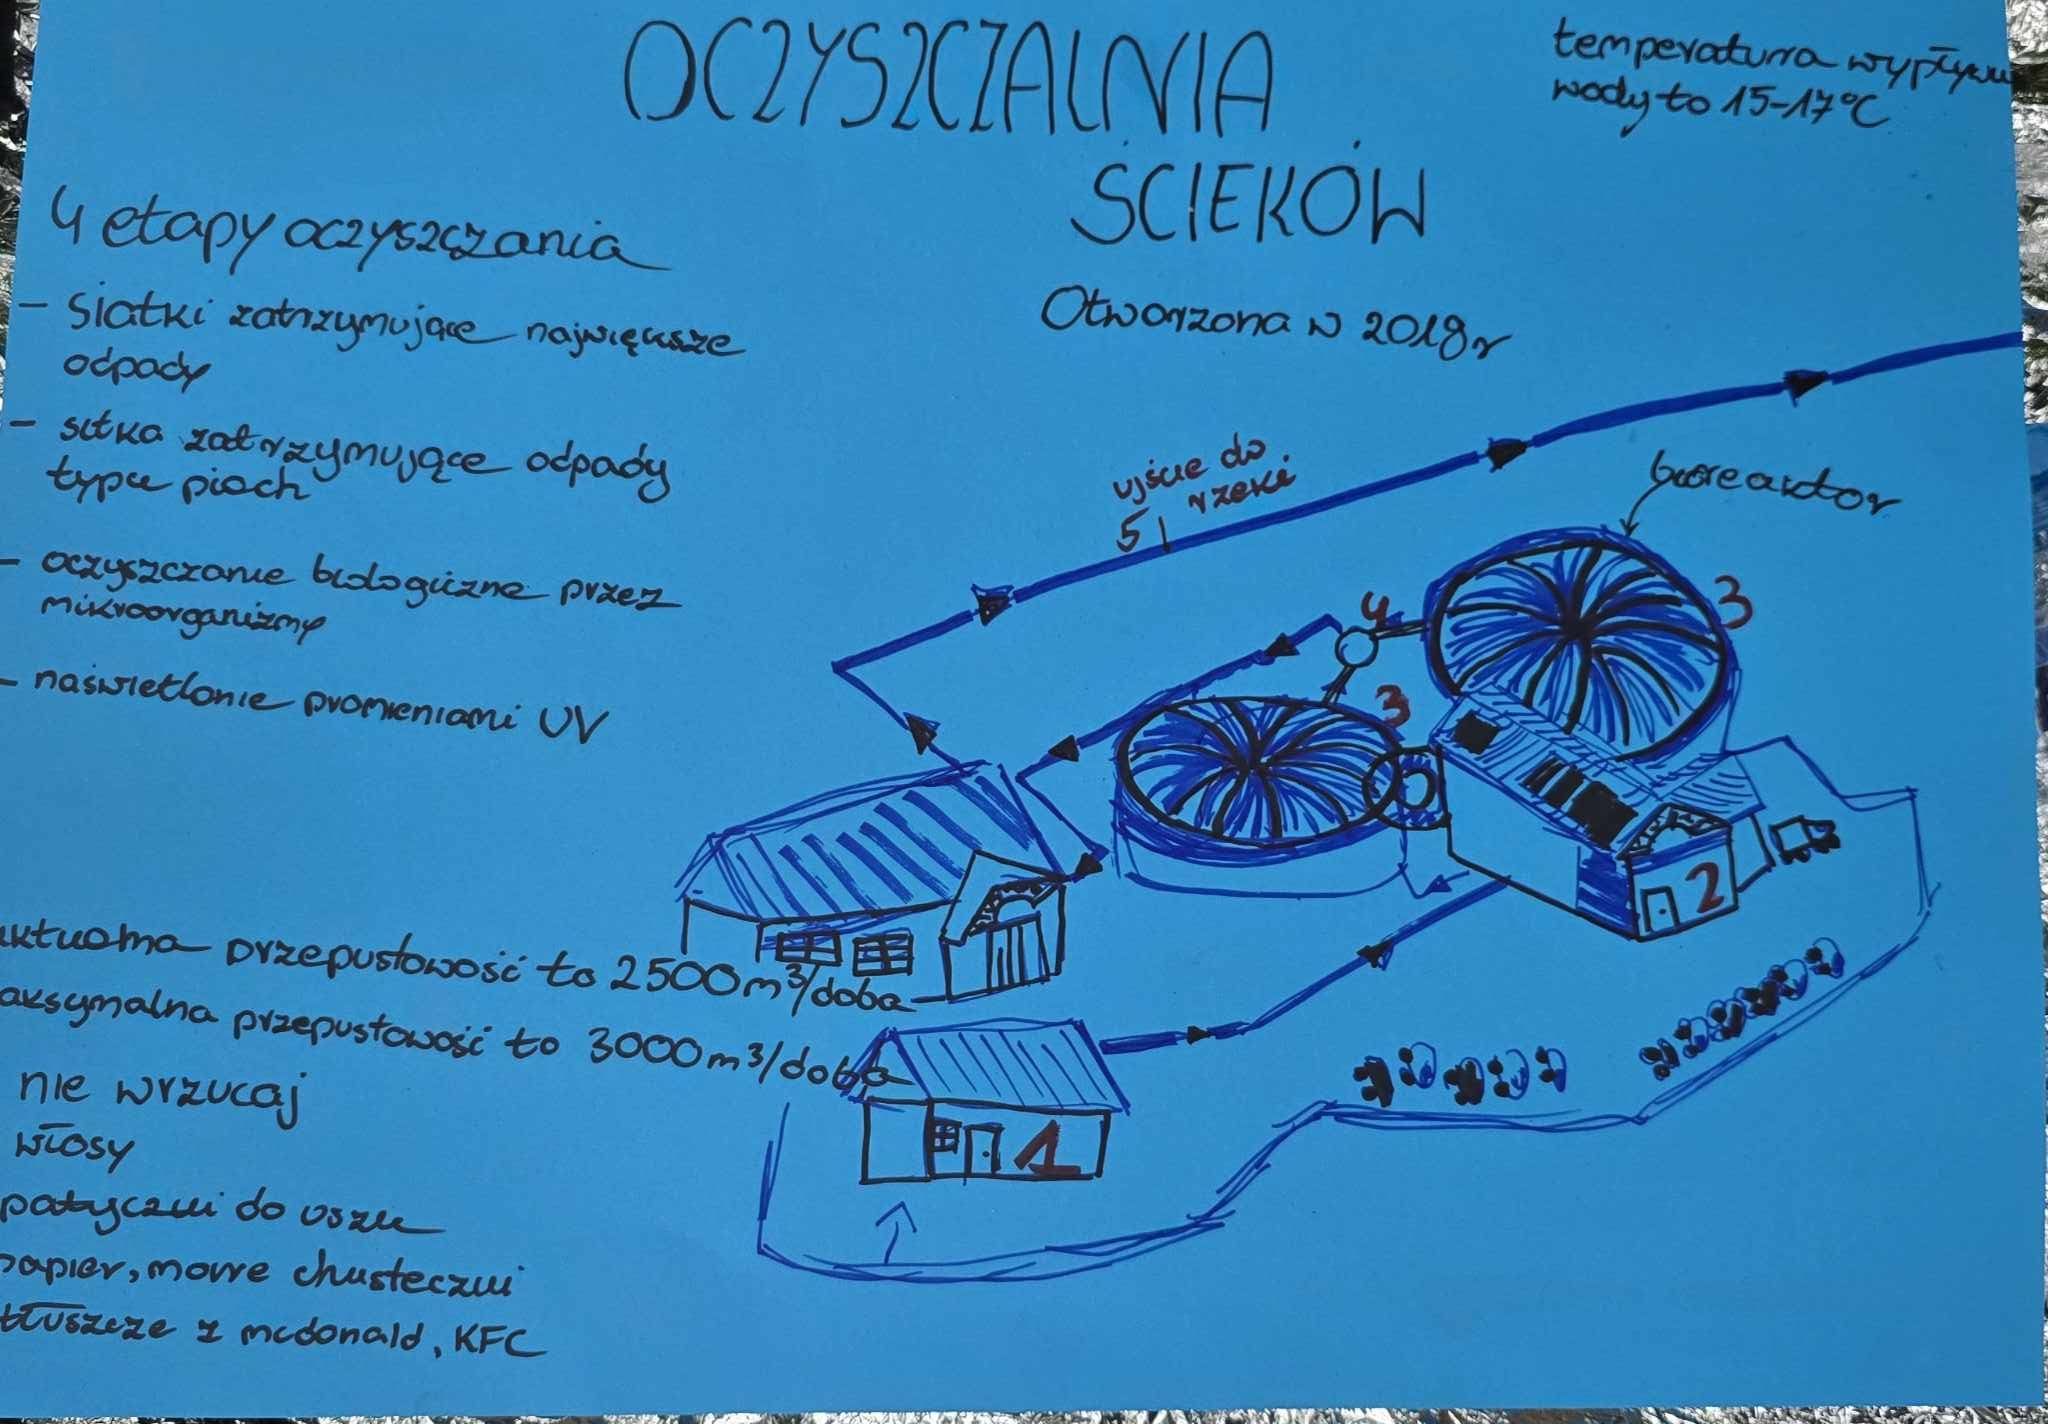 OCZYSZCZALNIA
ŚCIEKÓW
temperatura wypływu
wody to 15-17°C
Otworzona w 2018r
4 etapy oczyszczania
- siatki zatrzymujące największe
odpady
- sitka zatrzymujące odpady
typu piach
- oczyszczanie biologiczne przez
mikroorganizmy
- naświetlanie promieniami UV
ujście do
rzeki
5
bioreaktor
3
4
3
2
1
aktualna przepustowość to 2500 m³/doba
aksymalna przepustowość to 3000 m³/doba
nie wrzucaj
włosy
patyczki do uszu
papier, mokre chusteczki
tłuszcze z mcdonald, KFC